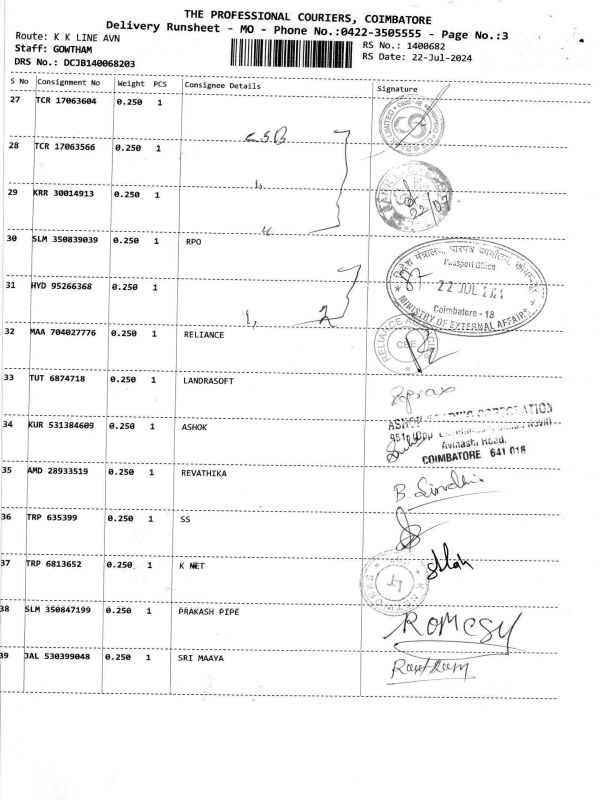 THE PROFESSIONAL COURIERS, COIMBATORE
Delivery Runsheet - MO - Phone No.:0422-3505555 - Page No.:3
Route: K K LINE AVN
RS No.: 1400682
Staff: GOWTHAM
RS Date: 22-Jul-2024
DRS No.: DCJB140068203
S No Consignment No Weight PCS Consignee Details Signature
27 TCR 17063604 0.250 1
28 TCR 17063566 0.250 1 C.S.B
29 KRR 30014913 0.250 1
22/07
30 SLM 350839039 0.250 1 RPO
Passport Office
22 JUL 2024
Coimbatore - 18
MINISTRY OF EXTERNAL AFFAIRS
31 HYD 95266368 0.250 1
2
32 MAA 704027776 0.250 1 RELIANCE
RELIANCE
CBE
33 TUT 6874718 0.250 1 LANDRASOFT
34 KUR 531384609 0.250 1 ASHOK
ASHOK TRADING CORPORATION
Avinashi Road,
COIMBATORE 641 018
35 AMD 28933519 0.250 1 REVATHIKA
B. Sindhu
36 TRP 635399 0.250 1 SS
37 TRP 6813652 0.250 1 K NET
K NETWORKS
38 SLM 350847199 0.250 1 PRAKASH PIPE
ROMESY
39 JAL 530399048 0.250 1 SRI MAAYA